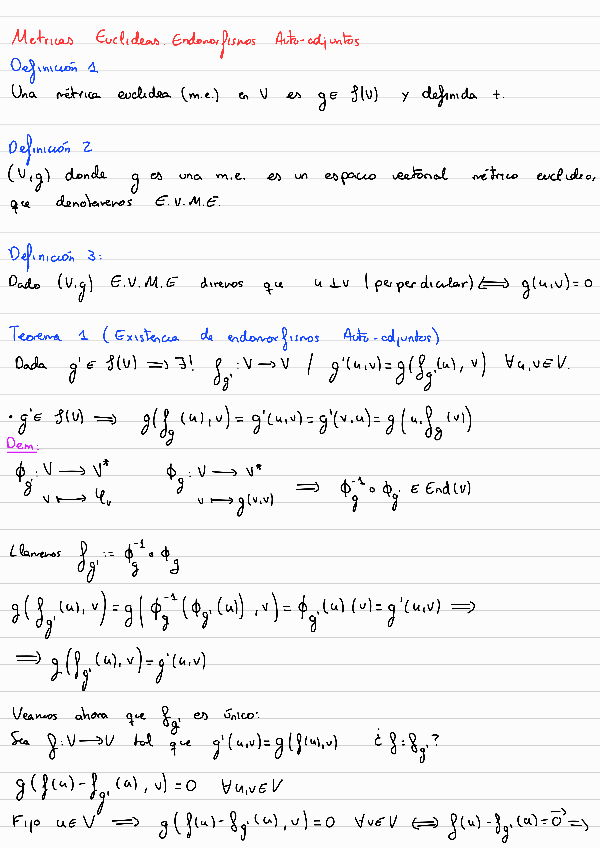 Metricas Euclideas. Endomorfismos Auto-adjuntos
Definición 1
Una métrica euclidea (m.e.) en V es g ∈ S(V) y definida +.
Definición 2
(V,g) donde g es una m.e. es un espacio vectorial métrico euclideo,
que denotaremos E.V.M.E.
Definición 3:
Dado (V,g) E.V.M.E diremos que u⊥v (perperdicular) ⟺ g(u,v)=0
Teorema 1 (Existencia de endomorfismos Auto-adjuntos)
Dada g' ∈ S(V) ⟹ ∃! f_g' : V→V / g'(u,v)=g(f_g'(u), v) ∀u,v∈V.
· g'∈ S(V) ⟹ g(f_g(u),v)=g'(u,v)=g'(v,u)=g(u,f_g(v))
Dem:
ϕ_g' : V ⟶ V* ϕ_g : V ⟶ V* ⟹ ϕ_g^-1 ∘ ϕ_g' ∈ End(V)
v ⟼ φ_v v ⟼ g(v,v)
Llamemos f_g' := ϕ_g^-1 ∘ ϕ_g
g(f_g'(u), v)=g(ϕ_g^-1(ϕ_g'(u)), v)=ϕ_g'(u)(v)=g'(u,v) ⟹
⟹ g(f_g'(u), v)=g'(u,v)
Veamos ahora que f_g' es único:
Sea f:V→V tal que g'(u,v)=g(f(u),v) ¿ f=f_g'?
g(f(u)-f_g'(u), v)=0 ∀u,v∈V
Fijo u∈V ⟹ g(f(u)-f_g'(u), v)=0 ∀v∈V ⟺ f(u)-f_g'(u)=0⃗ ⟹